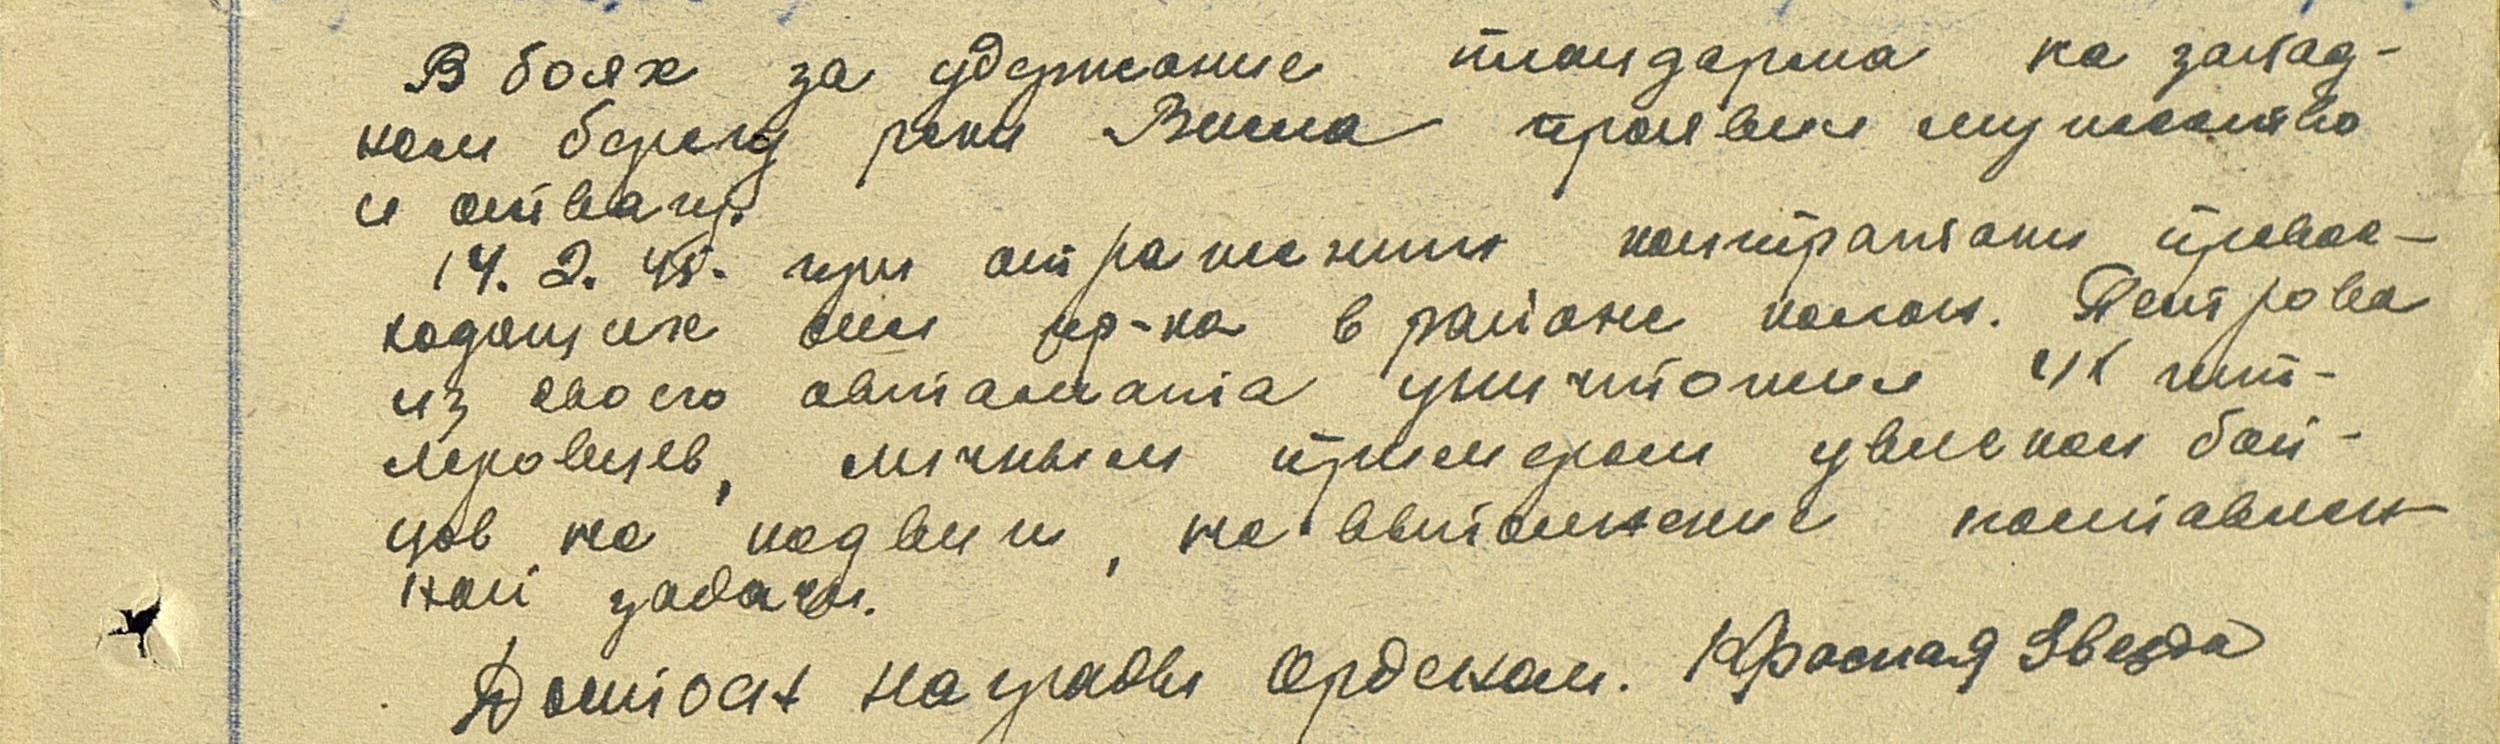 В боях за удержание плацдарма на запад-
ном берегу реки Висла проявил мужество
и отвагу.
14. 2. 45. при отражении контратаки превос-
ходящих сил пр-ка в районе колон. Петрова
из своего автомата уничтожил гит-
леровцев, личным примером увлекал бой-
цов на подвиги, на выполнение поставлен-
ной задачи.
Достоин награды Орденом. Красная Звезда